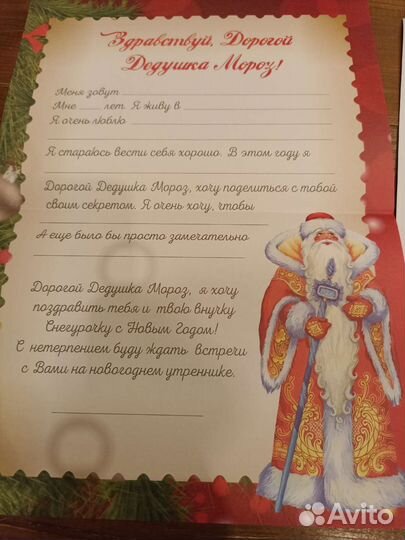 Здравствуй, Дорогой
Дедушка Мороз!
Меня зовут
Мне ____ лет. Я живу в
Я очень люблю
Я стараюсь вести себя хорошо. В этом году я
Дорогой Дедушка Мороз, хочу поделиться с тобой
своим секретом. Я очень хочу, чтобы
А еще было бы просто замечательно
Дорогой Дедушка Мороз, я хочу
поздравить тебя и твою внучку
Снегурочку с Новым Годом!
С нетерпением буду ждать встречи
с Вами на новогоднем утреннике.
Avito